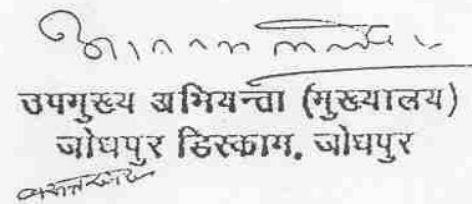 उपमुख्य अभियन्ता (मुख्यालय)
जोधपुर डिस्काम, जोधपुर